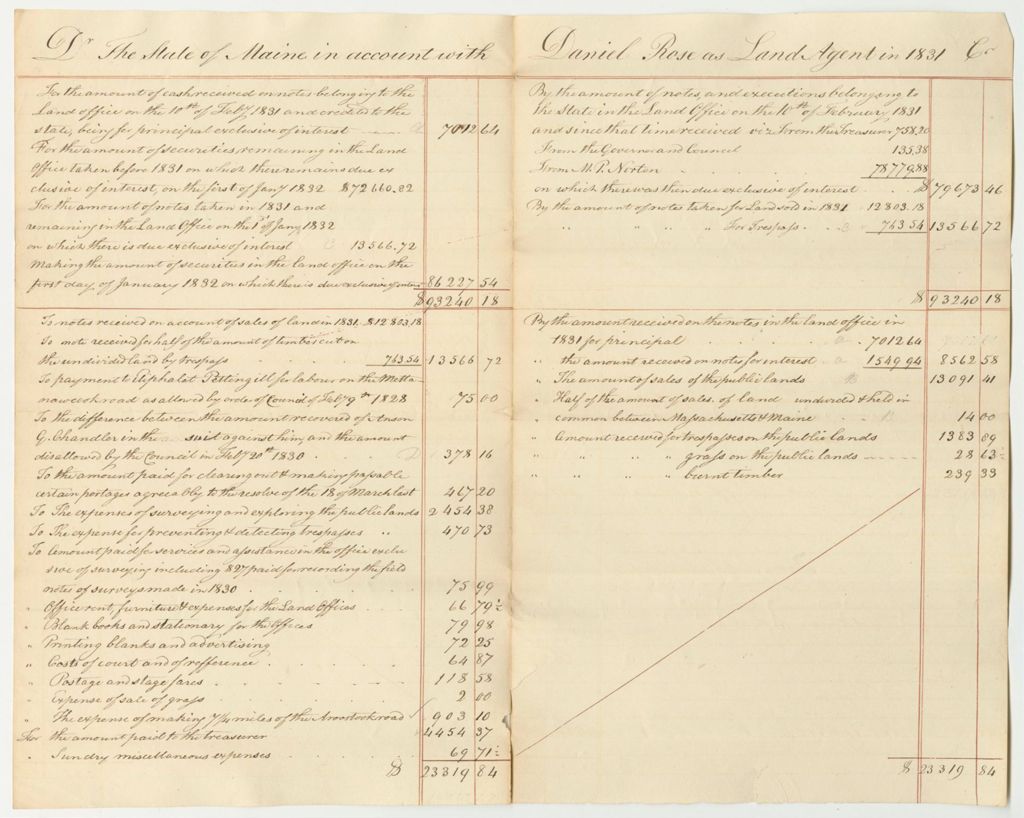 Dr The State of Maine in account with
For the amount of cash received on notes belonging to the
Land office on the 10th of Feby 1831 and credited to the
state, being for principal exclusive of interest 7012 64
For the amount of securities, remaining in the Land
Office taken before 1831 on which there remains due ex
clusive of interest, on the first of Jany 1832 $72660.82
For the amount of notes taken in 1831 and
remaining in the Land Office on the 1st of Jany 1832
on which there is due exclusive of interest 13566.72
making the amount of securities in the land office on the
first day of January 1832 on which there is due exclusive of interest 86227 54
$93240 18
To notes received on account of sales of land in 1831 $12803.18
To note received for half of the amount of timber cut on
the undivided land by trespass 763 54 13566 72
To payment to Eliphalet Pettingill for labour on the Matta-
nawcook road as allowed by order of Council of Feby 9th 1828 75 00
To the difference between the amount recovered of Anson
G. Chandler in the suit against him, and the amount
disallowed by the Council in Feby 20th 1830 378 16
To the amount paid for clearing out & making passable
certain portages agreeably to the resolve of the 18 of March last 467 20
To The expenses of surveying and exploring the public lands 2454 38
To The expense for preventing & detecting trespasses " 470 73
To Amount paid for services and assistance in the office exclu
sive of surveying including $27 paid for recording the field
notes of surveys made in 1830 75 99
" Office rent, furniture & expenses for the Land Offices 66 79½
" Blank books and stationary for the Offices 79 98
" Printing blanks and advertising 72 25
" Costs of court and of refference 64 87
" Postage and stage fares 118 58
" Expense of sale of grass 2 00
" The expense of making 7¼ miles of the Aroostook road 903 10
For the amount paid to the treasurer 4454 37
" Sundry miscellaneous expenses 69 71½
$ 23319 84
Daniel Rose as Land Agent in 1831 Cr
By the amount of notes, and executions belonging to
the State in the Land Office on the 10th of February 1831
and since that time received viz From the Treasurer 758.20
From the Governor and Council 135.38
From M. P. Norton 78779.88
on which there was then due exclusive of interest $79673 46
By the amount of notes taken for Land sold in 1831 12803.18
" " " " For Trespass 763 54 13566 72
$ 93240 18
By the amount received on the notes in the land office in
1831 for principal 7012 64
" the amount received on notes for interest 1549 94 8562 58
" The amount of sales of the public lands 13091 41
" Half of the amount of sales of land undivided & held in
common between Massachusetts & Maine 14 00
" Amount received for trespasses on the public lands 1383 89
" " " " grass on the public lands 28 63
" " " " burnt timber 239 33
$ 23319 84